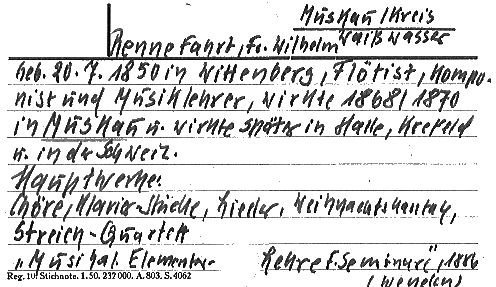 Muskau/Kreis
Weißwasser
Rennefahrt, Fr. Wilhelm
Geb. 20.7.1850 in Wittenberg, Flötist, Kompo-
nist und Musiklehrer, wirkte 1868/1870
in Muskau u. wirkte später in Halle, Krefeld
u. in der Schweiz.
Hauptwerke:
Chöre, Klavier-Stücke, Lieder, Weihnachtskantate,
Streich-Quartett
"Musikal. Elementar-Lehre f. Seminare", 1886
Reg. 10 Stichnote. 1. 50. 237000. A. 803. S. 4062